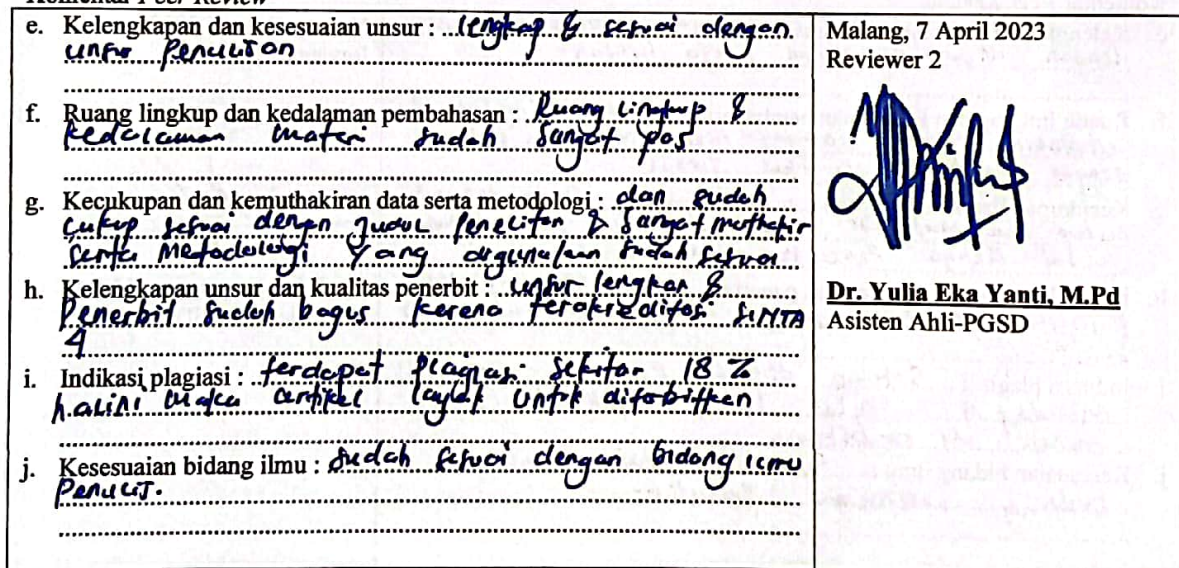 Komentar Peer Review
e. Kelengkapan dan kesesuaian unsur : lengkap & sesuai dengan
unsur Penulisan
f. Ruang lingkup dan kedalaman pembahasan : Ruang lingkup &
kedalaman materi sudah sangat pas
g. Kecukupan dan kemuthakiran data serta metodologi : dan sudah
cukup sesuai dengan judul penelitan & sangat muthakir
serta Metodologi yang digunakan sudah sesuai
h. Kelengkapan unsur dan kualitas penerbit : unsur lengkap &
Penerbit sudah bagus karena terakreditasi SINTA
4
i. Indikasi plagiasi : terdapat plagiasi sekitar 18 %
hal ini maka artikel layak untuk diterbitkan
j. Kesesuaian bidang ilmu : Sudah sesuai dengan bidang ilmu
Penulis.
Malang, 7 April 2023
Reviewer 2
Dr. Yulia Eka Yanti, M.Pd
Asisten Ahli-PGSD